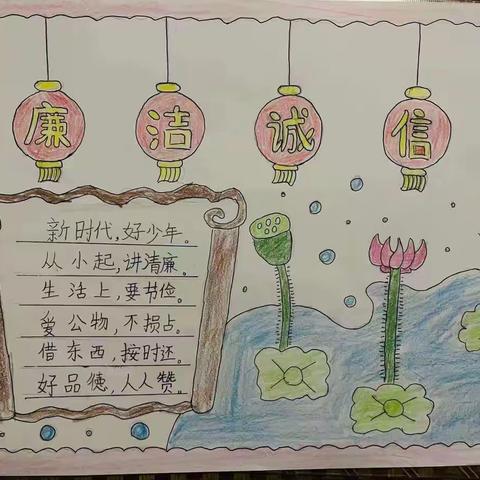 廉洁诚信
新时代,好少年。
从小起,讲清廉。
生活上,要书俭。
爱公物,不损占。
借东西,按时还。
好品德,人人赞。